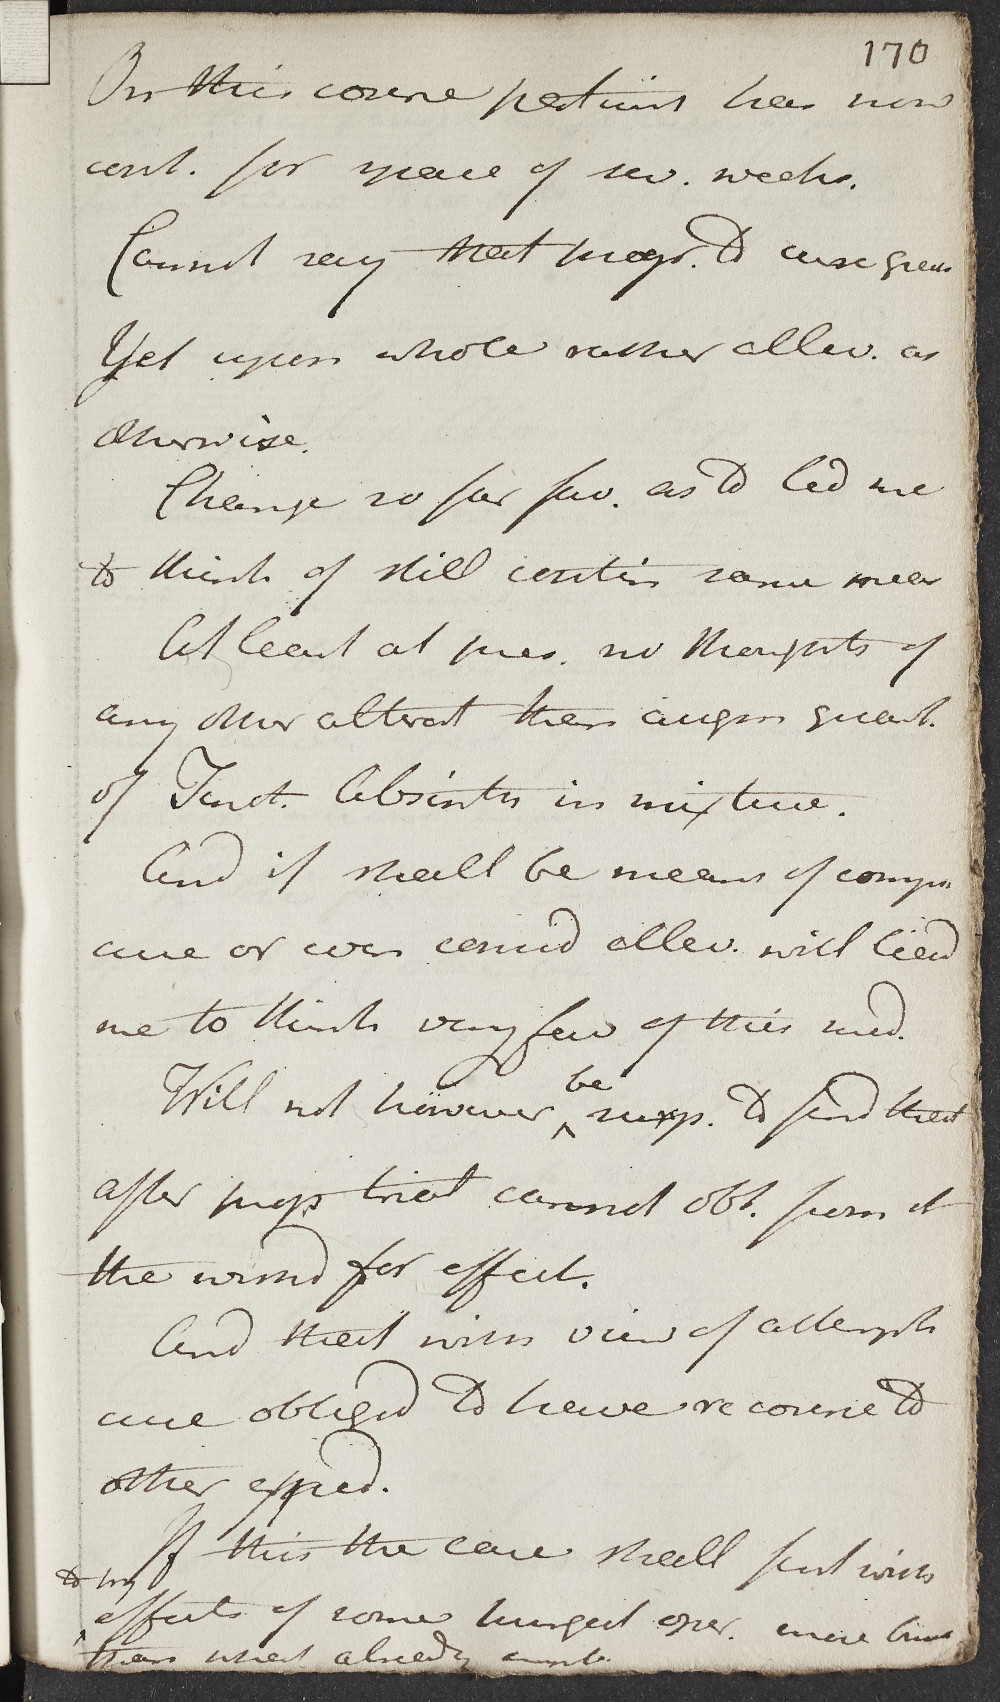 170
On this course patient has now
cont. for space of sev. weeks.
Cannot say that progr. to cure great
Yet upon whole rather allev. as
otherwise.
Change so far fav. as to led me
to think of still contin same mear
At least at pres. no thoughts of
any other alterat than augm quant.
of Tinct. Absinth in mixture.
And if shall be means of comp
cure or even consid allev. will lead
me to think very fav of this med.
Will not however be surp. to find that
after prop trial cannot obt. from it
the wished for effect.
And that with view of attempt
cure obliged to have recourse to
other exped.
If this the case shall first wish
to try
effects of some purgat oper. more
than what already empl.